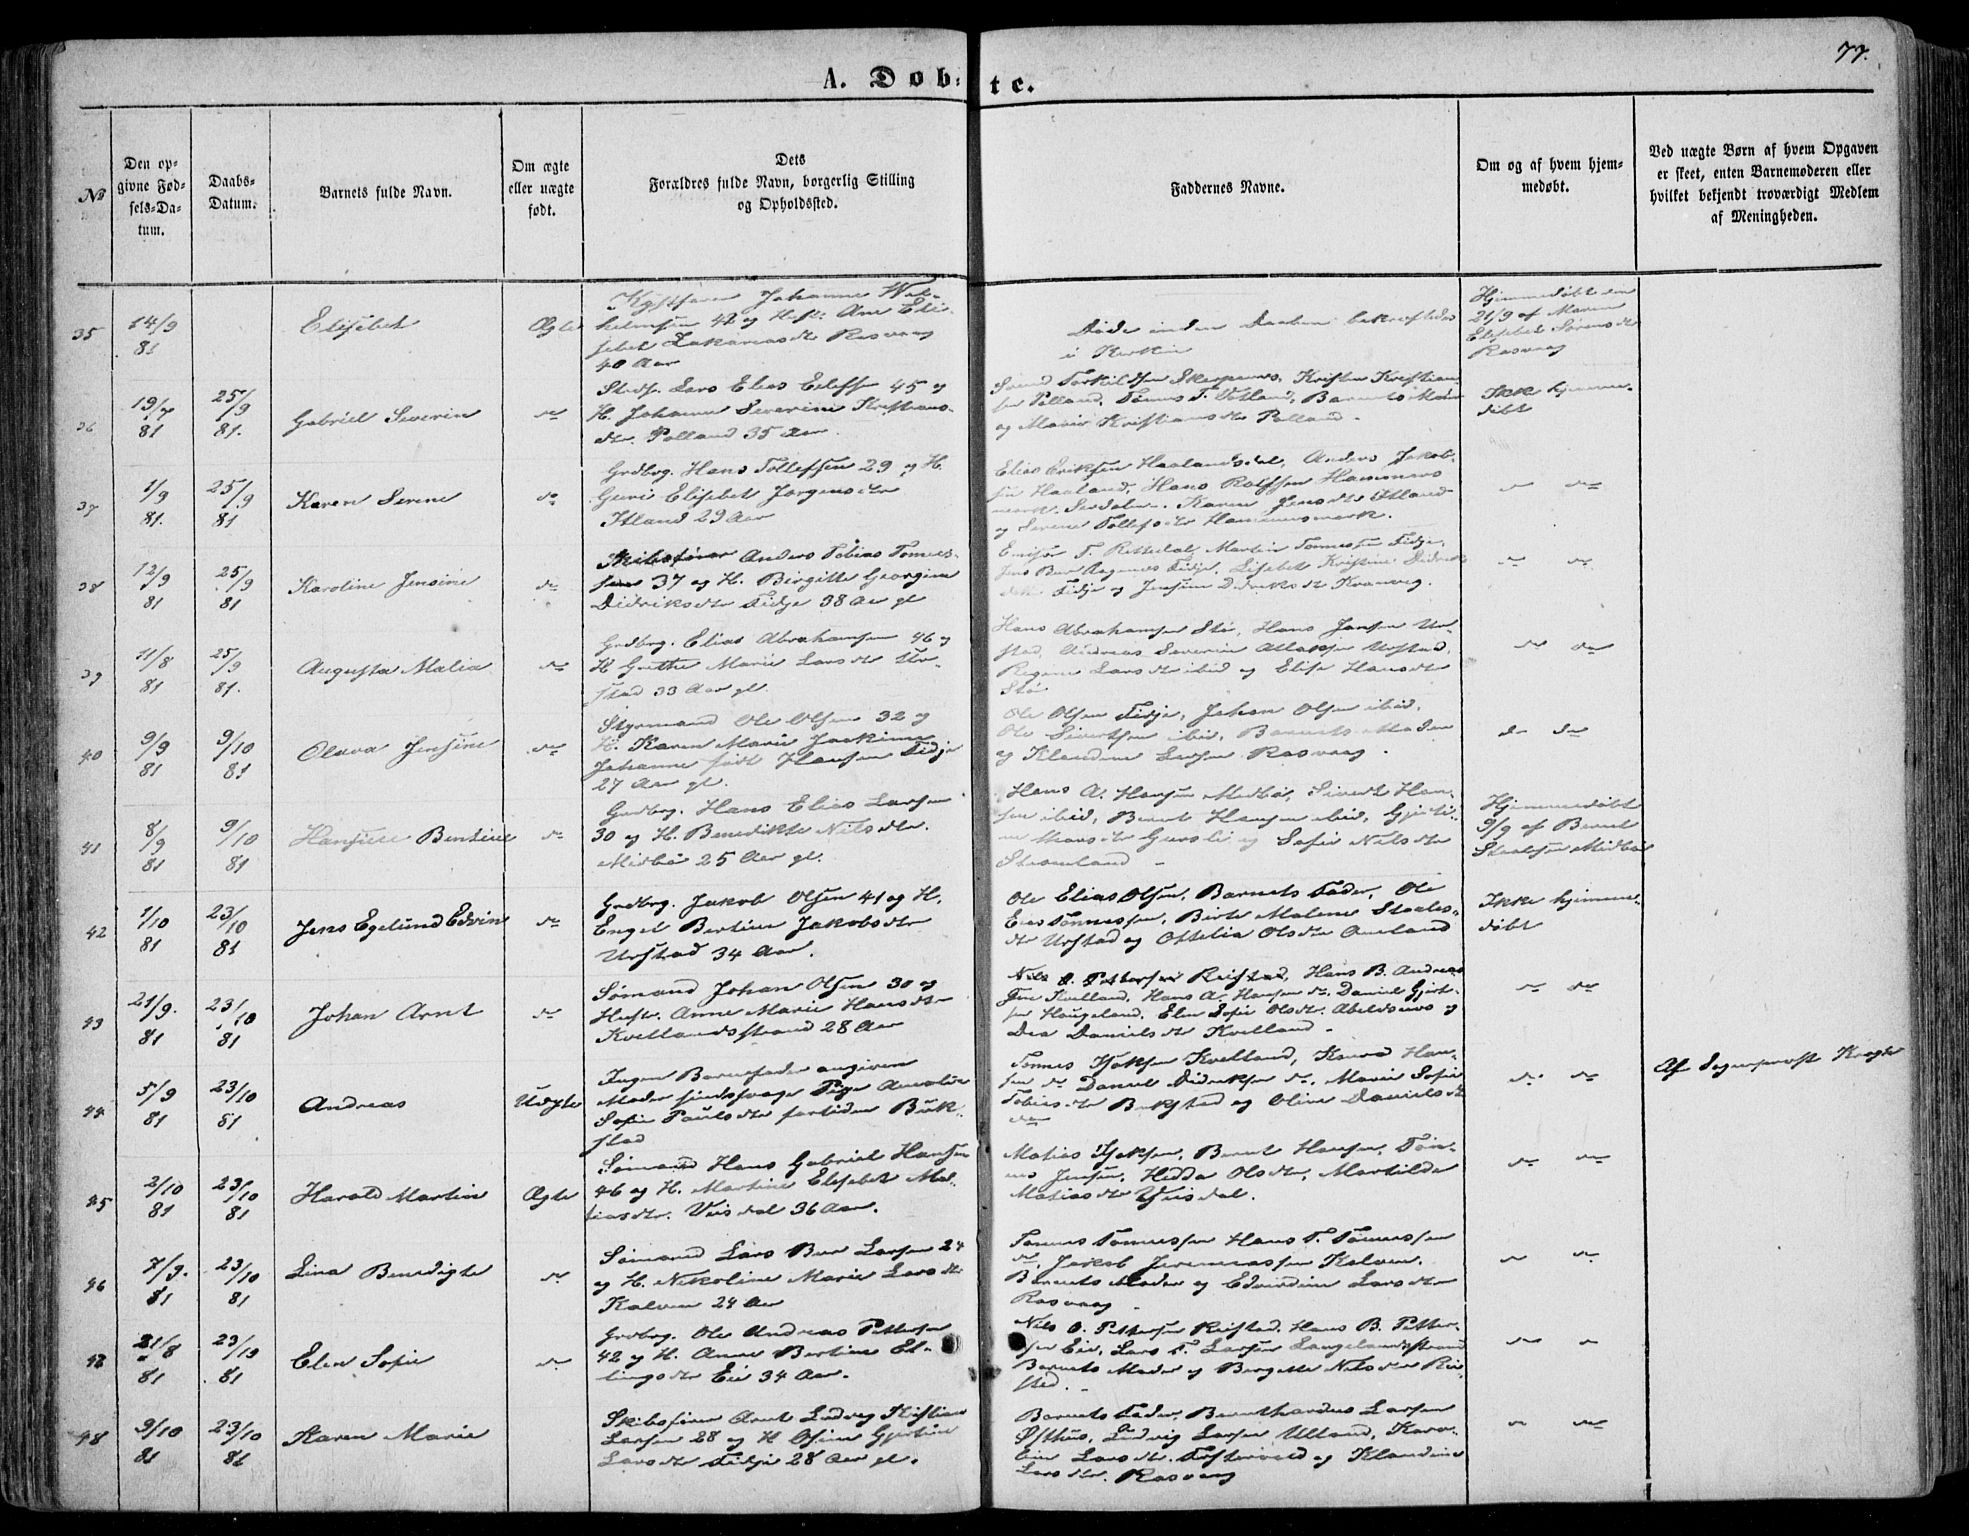 77.
A. Døb-te.
№
Den op-
givne Fød-
sels-Da-
tum.
Daabs-
Datum.
Barnets fulde Navn.
Om ægte
eller uægte
født.
Dets
Forældres fulde Navn, borgerlig Stilling
og Opholdssted.
Faddernes Navne.
Om og af hvem hjem-
medøbt.
Ved uægte Børn af hvem Opgaven
er skeet, enten Barnemoderen eller
hvilket bekjendt troværdigt Medlem
af Meningheden.
35
14/9
81
Elisebet
Ægte
Johannes
47 og Ane Eli-
sebet Zakariasdtr Rasvaag
40 Aar
Døde inden Daaben bekræftedes
i Kirken
Hjemmedøbt den
21/9 af Maren
Elisebet Sørensdtr
Rasvaag
36
19/7
81
25/9
81.
Gabriel Severin
do
Lars Elias 45 og
H. Johanne Severine Kristians-
dtr. Polland 35 Aar.
Kristen Kristian-
sen Polland, Barnets Moder
og Marie Kristiansdtr Polland
Ikke hjemme-
døbt
37
1/9
81.
25/9
81
Karen Serine
do
Grdbrg. Hans Tollefsen 29 og H.
Guri Elisebet Jørgensdtr
Itland 29 Aar
Elias Eriksen Haalandsdal, Anders Jakob-
sen Haaland, Hans
Karen Jensdtr Itland
og Serine Tollefsdtr Hammersmark.
do do
38
12/9
81
25/9
81
Karoline Jensine
do
Skibsfører Anders Tobias Tønnes-
sen 37 og H. Birgitte Georgine
Didriksdtr Fidje 38 Aar gl
Martin Tønnessen Fidje,
Fidje, Lisebet Kristine Didriks-
dtr Fidje og Jensine Didriksdtr
do do
39
11/8
81
25/9
81.
Augusta Malia
do
Grdbrg. Elias Abrahamsen 46 og
H. Grethe Marie Larsdtr Ur-
stad 33 Aar gl.
Hans Abrahamsen Stø, Hans Jansen Ur-
stad, Andreas Severin Urstad,
Regine Larsdtr ibid og Elise Hansdtr
Stø
do do
40
9/9
81
9/10
81
Olava Jensine
do
Styrmand Ole Olsen 32 og
H. Karen Marie Joakime
Johanne født Hansen Fidje
27 Aar gl.
Ole Olsen Fidje, Johan Olsen ibid,
Ole Sivertsen ibid, Barnets Moder
og Klandine Larsen Rasvaag.
do do
41
8/9
81
9/10
81
Hansine Bentine
do
Grdbrg. Hans Elias Larsen
30 og H. Benedikte Nilsdtr.
Midbø 25 Aar gl.
Hans A. Hansen Midbø, Sivert Han-
sen ibid, Berent Hansen ibid,
og Sofie Nilsdtr
Hjemmedøbt
9/9 af Berent
Staalesen Midbø
42
1/10
81
23/10
81
Jens Egelund Edvin
do
Grdbrg. Jakob Olsen 41 og H.
Engel Bertine Jakobsdtr
Urstad 34 Aar.
Ole Elias Olsen, Barnets Fader, Ole
Elias Tønnessen, Birte Malene Staales-
dtr Urstad og Ottelia Olsdtr Omland
Ikke hjemme-
døbt
43
21/9.
81
23/10
81
Johan Arnt
do
Sømand Johan Olsen 30 og
Hustr. Anne Marie Hansdtr
Kvellandsstrand 28 Aar
Nils O. Pettersen Reistad, Hans B. Andreas-
sen Kvelland, Hans A. Hansen do. Daniel Gjert-
sen Haugeland, Elen Sofie Olsdtr. Abelsnes og
Dea Danielsdtr Kvelland
do do
44
5/9
81
23/10
81
Andreas
Uægte
Ingen Barnefader angiven
Moder sindssvage Pige Amalie
Sofie Paulsdtr fortiden Buk-
stad
Tønnes Kvelland, Konrad Han-
sen do Daniel Didriksen do. Marie Sofie
Tobiasdtr Bukstad og Oline Danielsdtr
do
do do
Af Sogneprest Krogh
45
2/10
81
23/10
81
Harald Martin
Ægte
Sømand Hans Gabriel Hansen
46 og H. Martine Elisebet Mat-
tiasdtr. Veisdal 36 Aar.
Matias Berent Hansen, Tøn-
nes Jensen, Hedda Olsdtr, Martilde
Matiasdtr Veisdal.
do do
46
7/9.
81
23/10
81
Lina Benedigte
do
Sømand Lars Bur Larsen 24
og H. Nikoline Marie Larsdtr
Kalven 24 Aar
Tønnes Tønnessen Hans T. Tønnessen
do, Jakob Jeremiassen Kalven,
Barnets Moder og Edvardine Larsdtr
Rasvaag
do do
47
21/8
81
23/10
81
Elen Sofie
do
Grdbrg. Ole Andreas Pettersen
42 og H. Anne Bertine El-
lingsdtr Eie 34 Aar.
Nils O. Pettersen Reistad, Hans B. Petter-
sen Eie, Lars T. Larsen Langelandsstrand
Barnets Moder og Bergette Nilsdtr Rei-
stad.
do
48
9/10
81
23/10
81
Karen Marie
Skibsfører Arnt Ludvig Kristian
Larsen 28 og H Gjertine
Larsdtr Fidje 28 Aar gl.
Barnets Fader, Bernthardus Larsen
Østhus, Ludvig Larsen Ulland, Karo-
line Larsdtr. og Klandine
Larsdtr. Rasvaag
do do